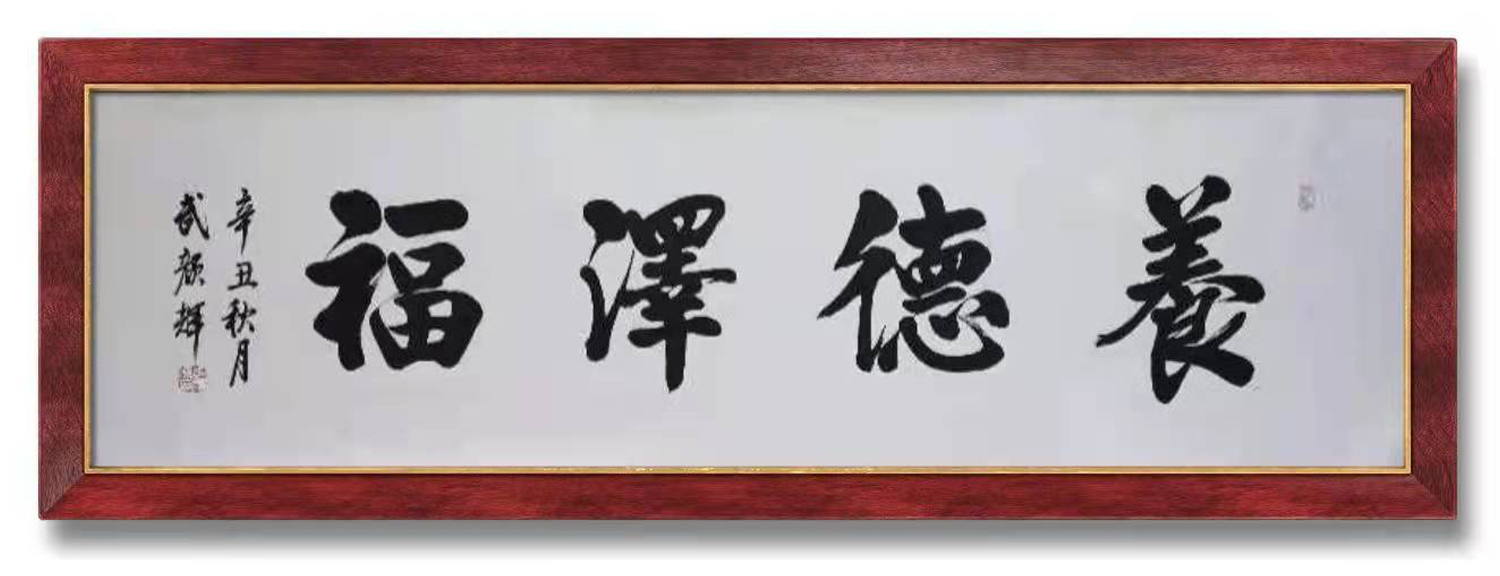 養德澤福
辛丑秋月
武顏輝